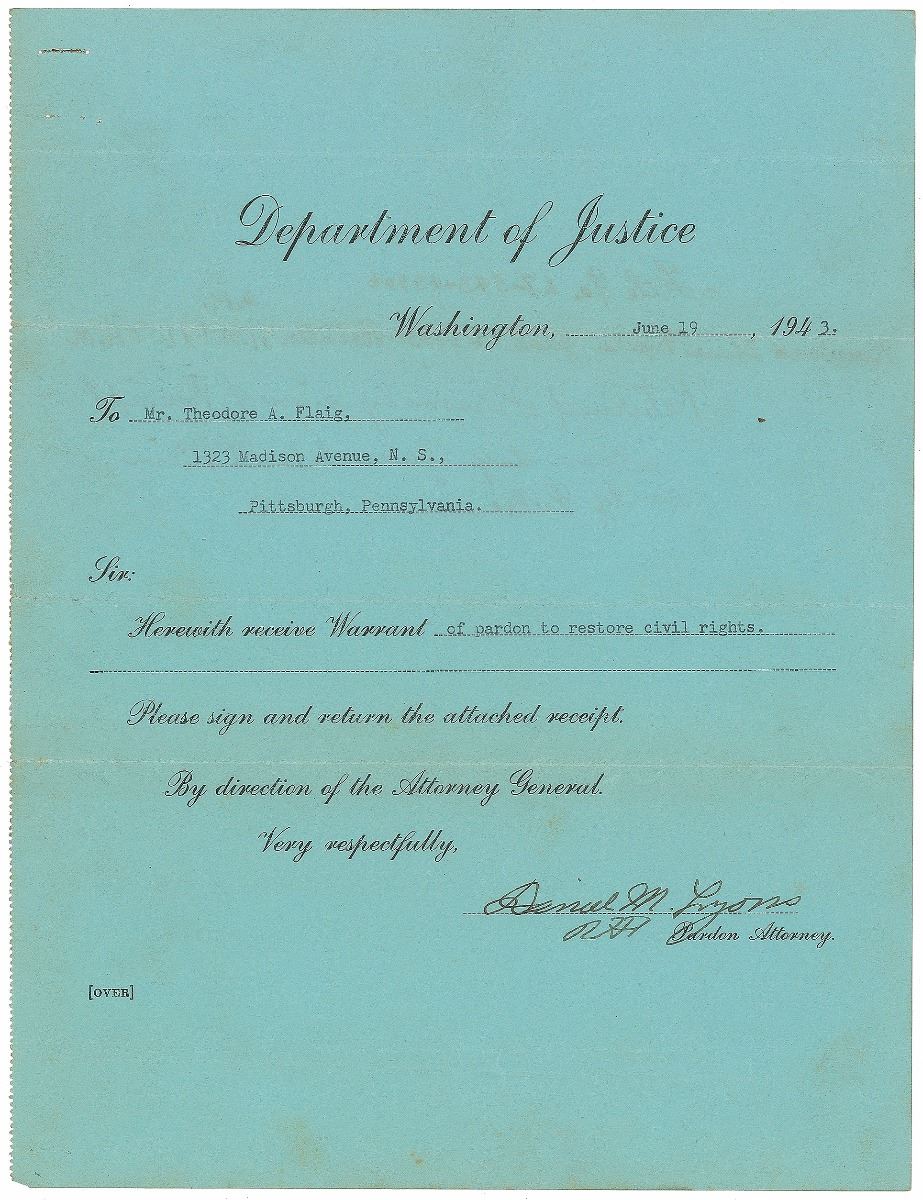 Department of Justice
Washington, June 19, 1943.
To Mr. Theodore A. Flaig,
1323 Madison Avenue, N. S.,
Pittsburgh, Pennsylvania.
Sir:
Herewith receive Warrant of pardon to restore civil rights.
Please sign and return the attached receipt.
By direction of the Attorney General.
Very respectfully,
Daniel M. Lyons
Pardon Attorney.
[OVER]